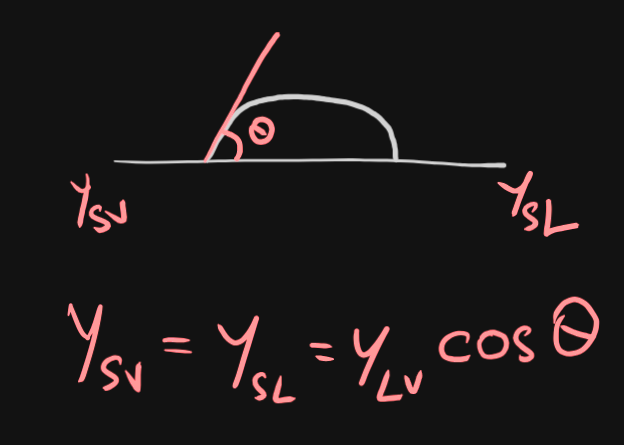 θ
γSV γSL
γSV = γSL = γLV cos θ